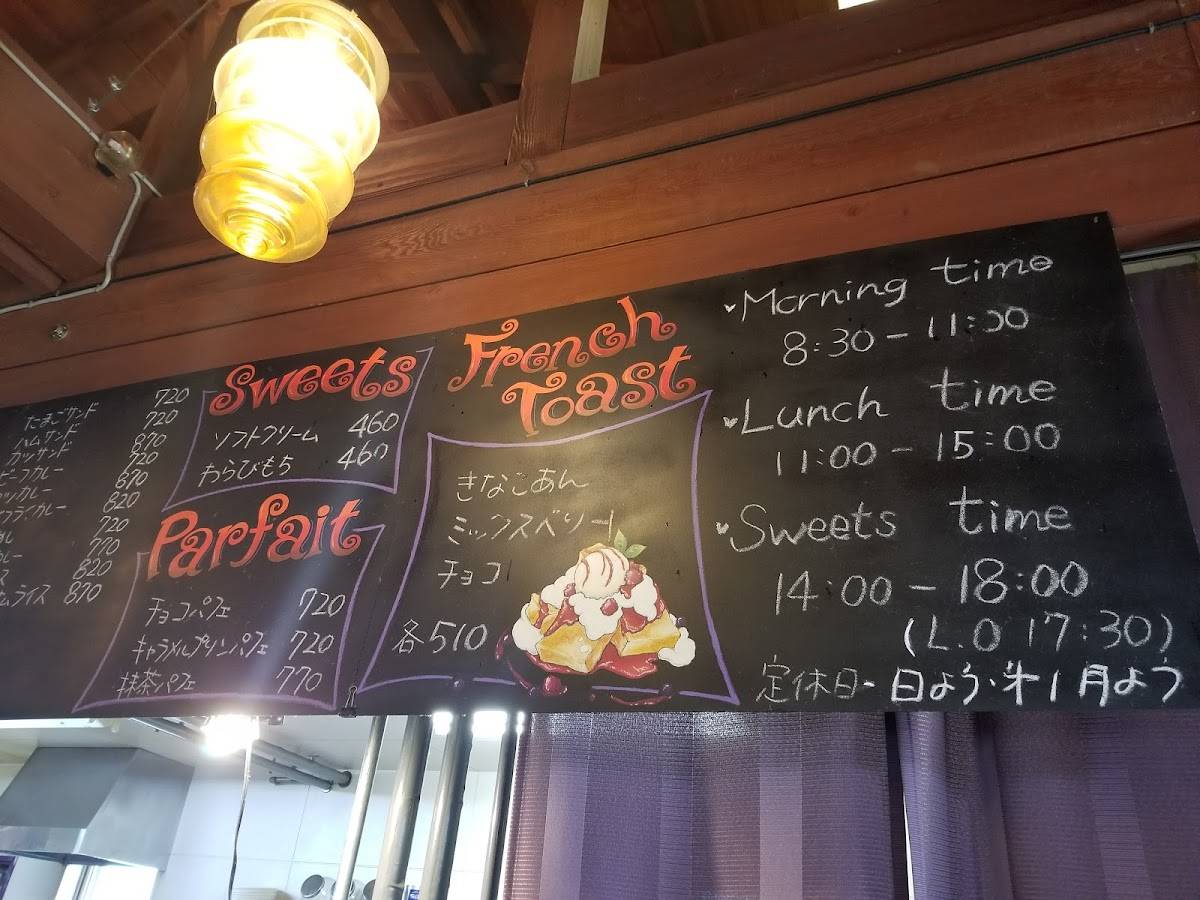 たまごサンド 720
ハムサンド 720
カツサンド 870
ビーフカレー 720
カツカレー 870
820
720
770
820
ムライス 870
Sweets
ソフトクリーム 460
わらびもち 460
Parfait
チョコパフェ 720
キャラメルプリンパフェ 720
抹茶パフェ 770
French
Toast
きなこあん
ミックスベリー
チョコ
各510
Morning time
8:30 - 11:00
Lunch time
11:00 - 15:00
Sweets time
14:00 - 18:00
(L.O 17:30)
定休日・日よう・オ1月よう